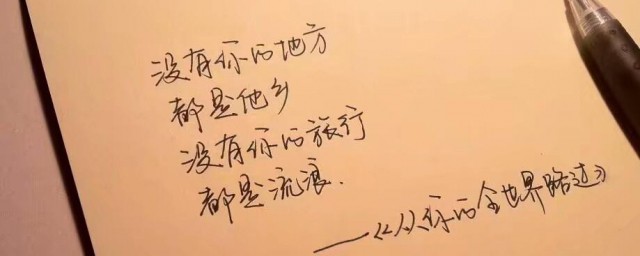 没有你的地方
都是他乡
没有你的旅行
都是流浪.
——《从你的全世界路过》